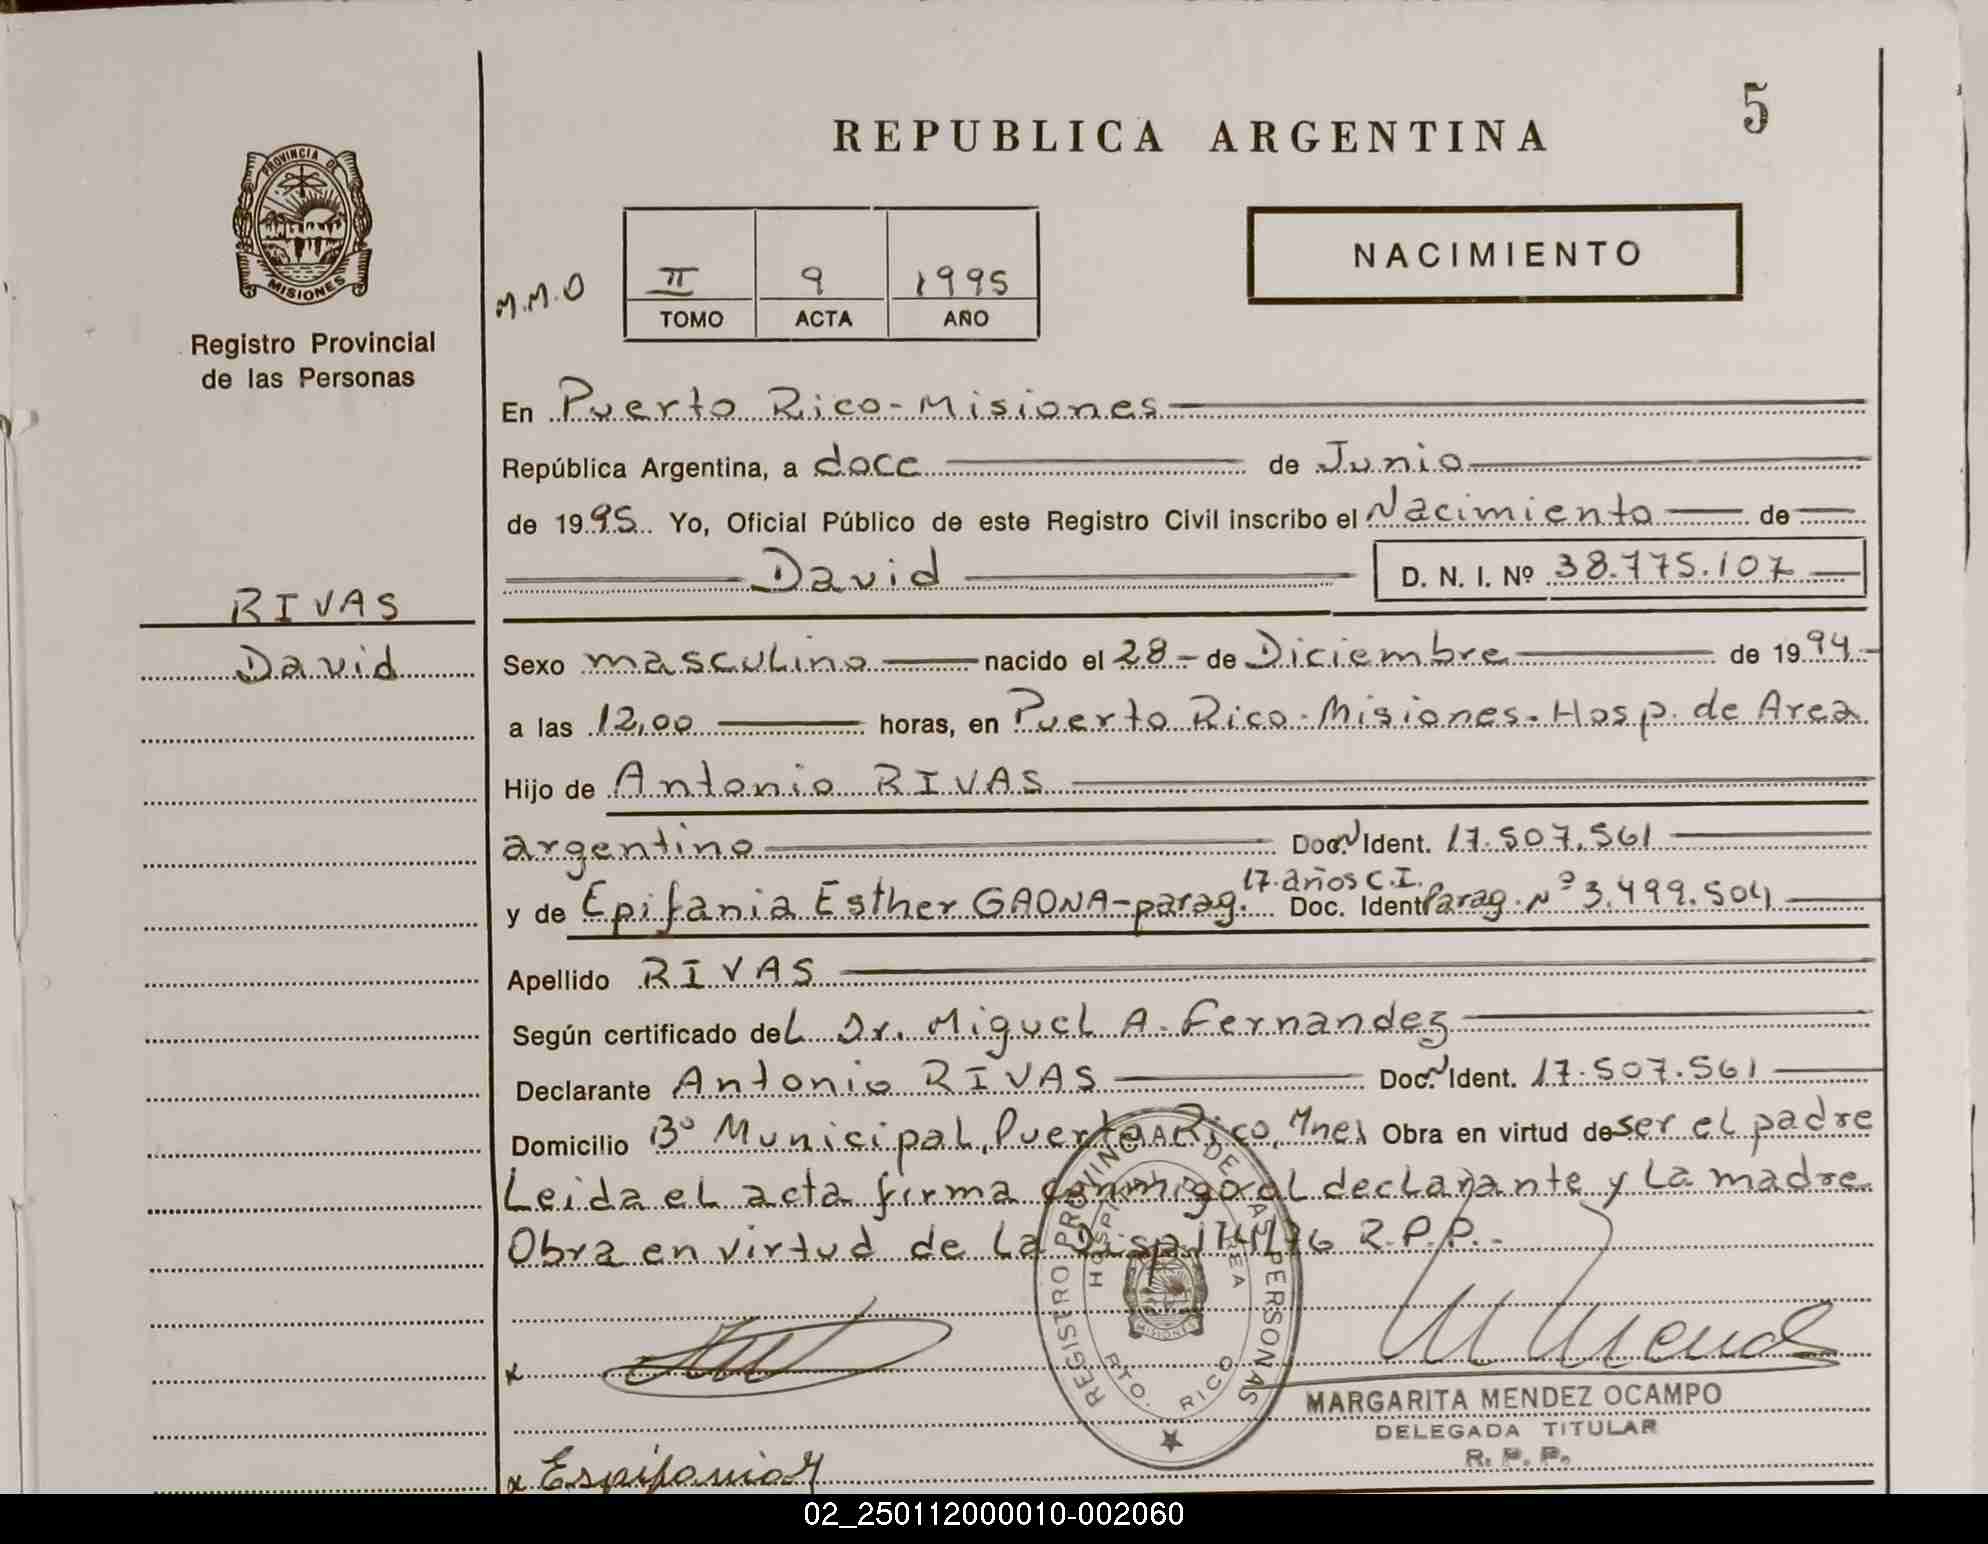 5
REPUBLICA ARGENTINA
PROVINCIA DE
MISIONES
Registro Provincial
de las Personas
M.M.O
II 9 1995
TOMO ACTA AÑO
NACIMIENTO
En Puerto Rico-Misiones
República Argentina, a doce de Junio
de 1995 Yo, Oficial Público de este Registro Civil inscribo el Nacimiento de
David D. N. I. Nº 38.775.107
RIVAS
David
Sexo masculino nacido el 28 - de Diciembre de 1994
a las 12,00 horas, en Puerto Rico-Misiones. Hosp. de Area
Hijo de Antonio RIVAS
argentino Doc. Ident. 17.507.561
17 años C.I.
y de Epifania Esther GAONA-parag. Doc. Ident Parag. Nº 3.499.504
Apellido RIVAS
Según certificado del Dr. Miguel A. Fernandez
Declarante Antonio RIVAS Doc. Ident. 17.507.561
Domicilio Bº Municipal, Puerto Rico, Mnes Obra en virtud de ser el padre
Leida el acta firma conmigo el declarante y La madre.
Obra en virtud de la Disp. 174/76 R.P.P.-
REGISTRO PROVINCIAL DE LAS PERSONAS
HOSPITAL AREA
MISIONES
PTO. RICO
MARGARITA MENDEZ OCAMPO
DELEGADA TITULAR
R. P. P.
02_250112000010-002060